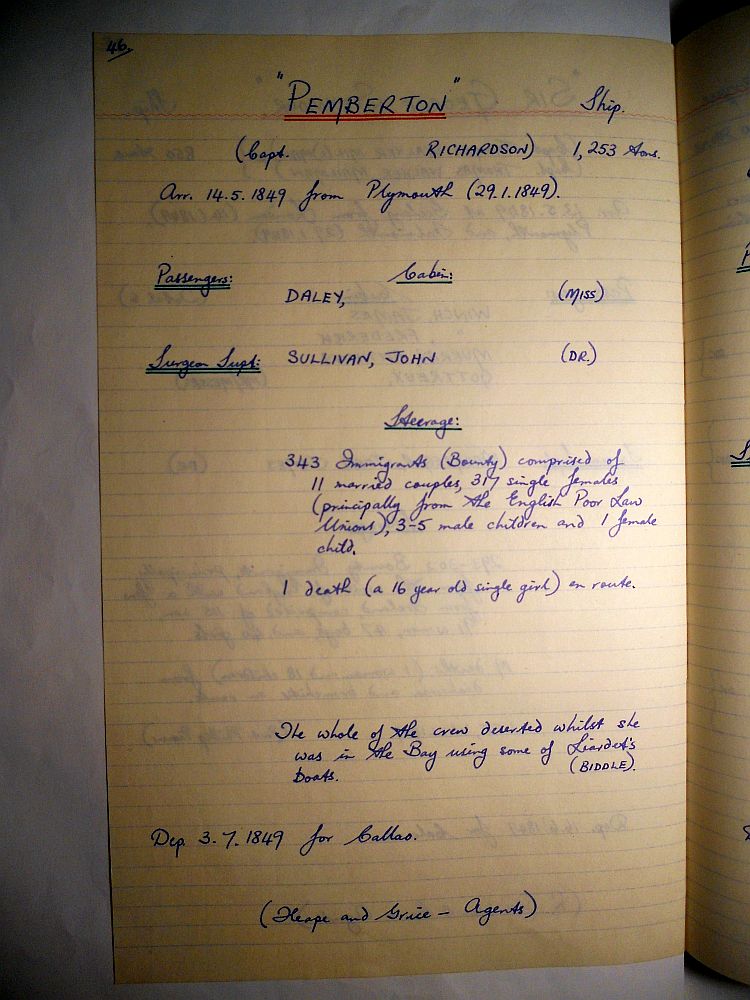 46.
"PEMBERTON" Ship.
(Capt. RICHARDSON) 1,253 tons.
Arr. 14.5.1849 from Plymouth (29.1.1849).
Passengers: Cabin:
DALEY, (MISS)
Surgeon Supt: SULLIVAN, JOHN (DR.)
Steerage:
343 Immigrants (Bounty) comprised of
11 married couples, 317 single females
(principally from the English Poor Law
Unions), 3-5 male children and 1 female
child.
1 death (a 16 year old single girl) en route.
The whole of the crew deserted whilst she
was in the Bay using some of Liardet's
boats. (BIDDLE).
Dep. 3.7.1849 for Callao.
(Heape and Grice - Agents)